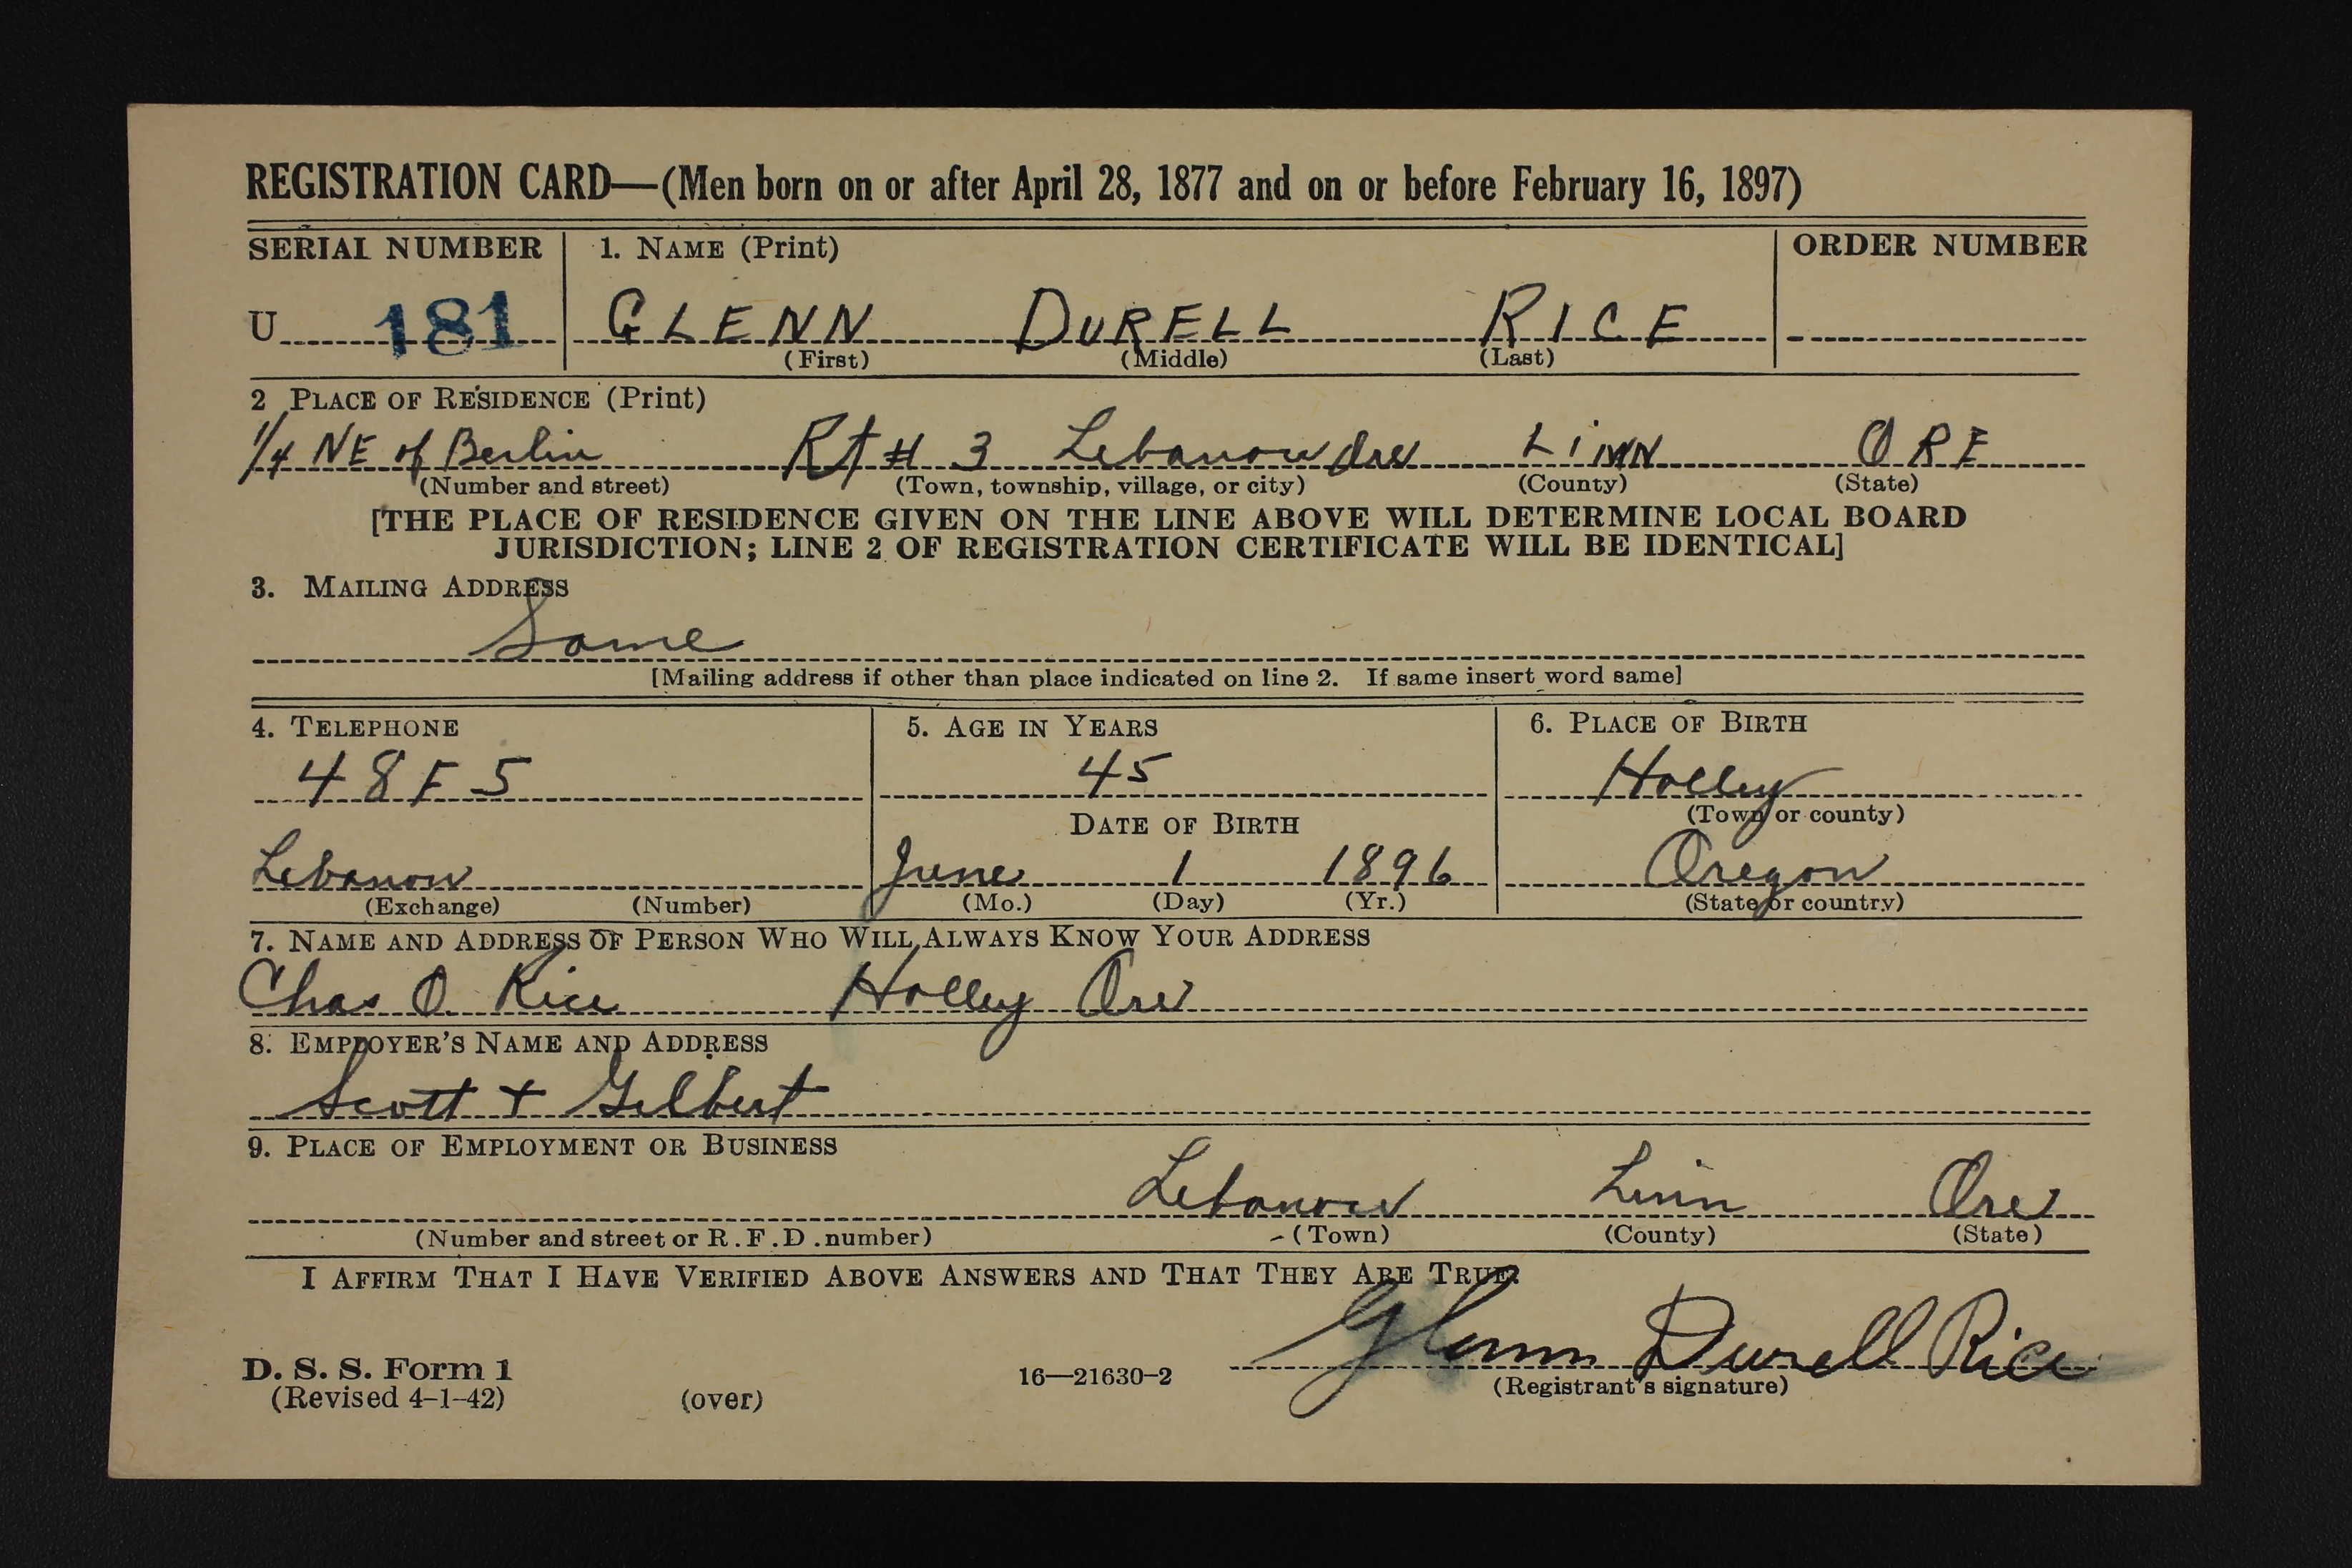 REGISTRATION CARD—(Men born on or after April 28, 1877 and on or before February 16, 1897)
SERIAL NUMBER 1. NAME (Print) ORDER NUMBER
U 181 GLENN DURELL RICE
(First) (Middle) (Last)
2 PLACE OF RESIDENCE (Print)
1/4 NE of Berlin Rt # 3 Lebanon Ore LINN ORE
(Number and street) (Town, township, village, or city) (County) (State)
[THE PLACE OF RESIDENCE GIVEN ON THE LINE ABOVE WILL DETERMINE LOCAL BOARD
JURISDICTION; LINE 2 OF REGISTRATION CERTIFICATE WILL BE IDENTICAL]
3. MAILING ADDRESS
Same
[Mailing address if other than place indicated on line 2. If same insert word same]
4. TELEPHONE 5. AGE IN YEARS 6. PLACE OF BIRTH
48F5 45 Holley
(Town or county)
DATE OF BIRTH
Lebanon June 1 1896 Oregon
(Exchange) (Number) (Mo.) (Day) (Yr.) (State or country)
7. NAME AND ADDRESS OF PERSON WHO WILL ALWAYS KNOW YOUR ADDRESS
Chas O. Rice Holley Ore
8. EMPLOYER'S NAME AND ADDRESS
Scott + Gilbert
9. PLACE OF EMPLOYMENT OR BUSINESS
Lebanon Linn Ore
(Number and street or R.F.D. number) (Town) (County) (State)
I AFFIRM THAT I HAVE VERIFIED ABOVE ANSWERS AND THAT THEY ARE TRUE.
Glenn Durell Rice
D. S. S. Form 1 16—21630-2 (Registrant's signature)
(Revised 4-1-42) (over)